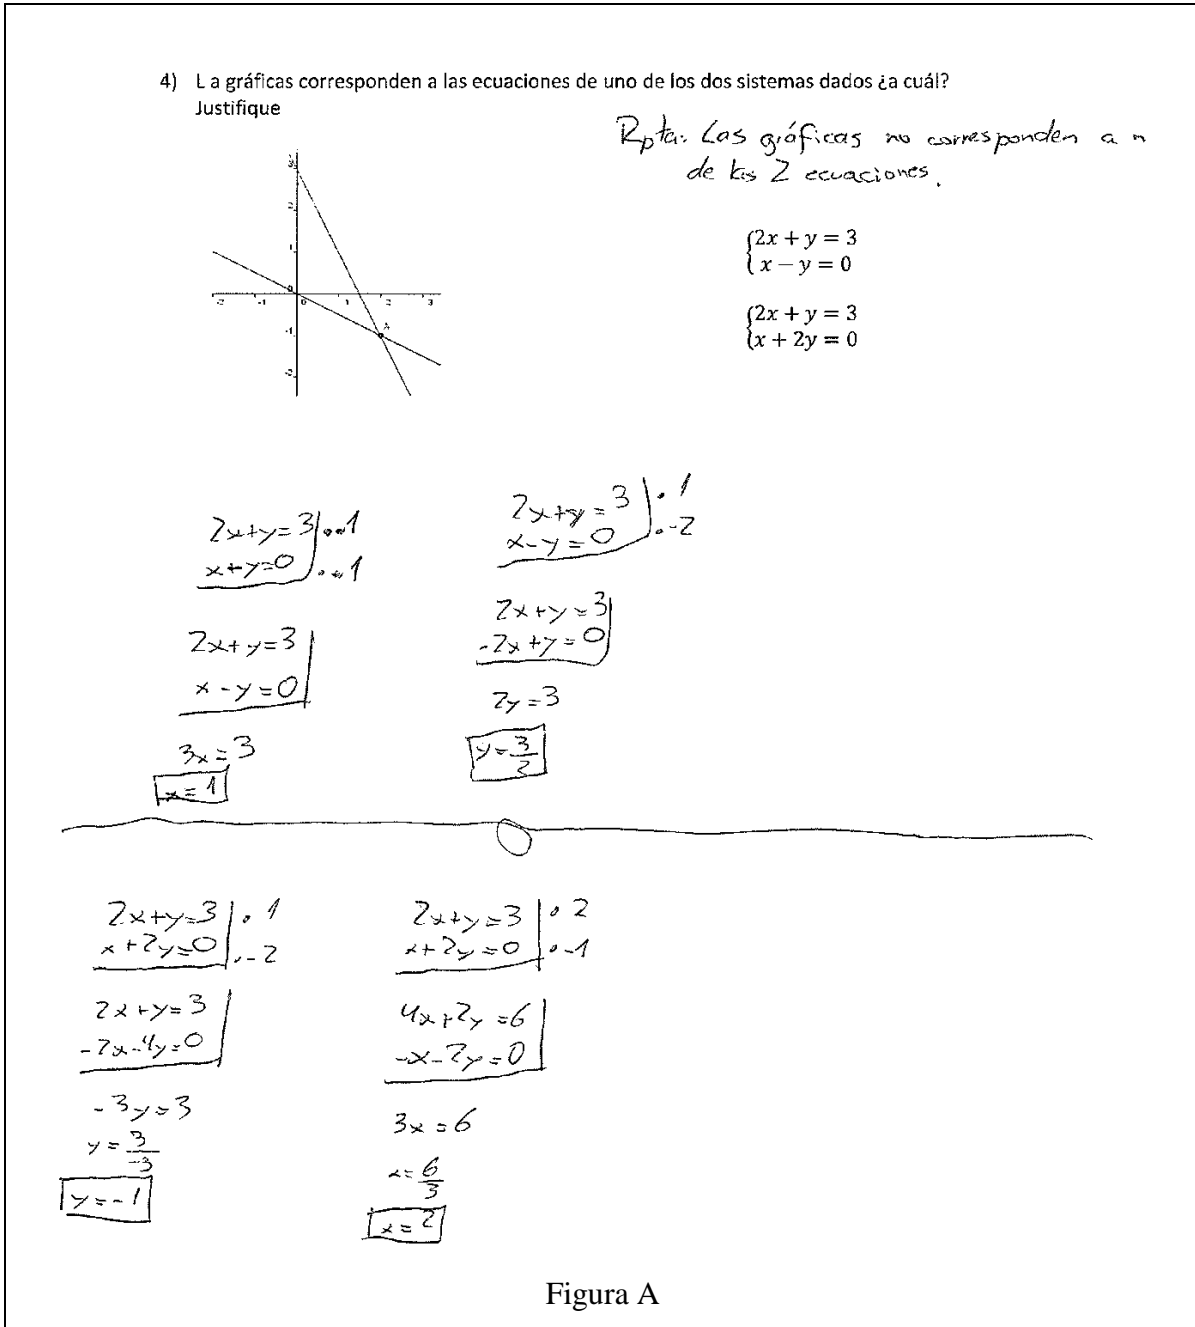 4) L a gráficas corresponden a las ecuaciones de uno de los dos sistemas dados ¿a cuál?
Justifique
Rpta: Las gráficas no corresponden a n
de los 2 ecuaciones.
3
2
1
0
-2 -1 0 1 2 3
A
-1
-2
{2x + y = 3
x − y = 0
{2x + y = 3
x + 2y = 0
2x+y=3 | ·1
x+y=0 | ·1
2x+y=3
x-y=0
3x=3
x=1
2x+y=3 | ·1
x-y=0 | ·-2
2x+y=3
-2x+y=0
2y=3
y=3/2
2x+y=3 | ·1
x+2y=0 | ·-2
2x+y=3
-2x-4y=0
-3y=3
y=3/-3
y=-1
2x+y=3 | ·2
x+2y=0 | ·-1
4x+2y=6
-x-2y=0
3x=6
x=6/3
x=2
Figura A